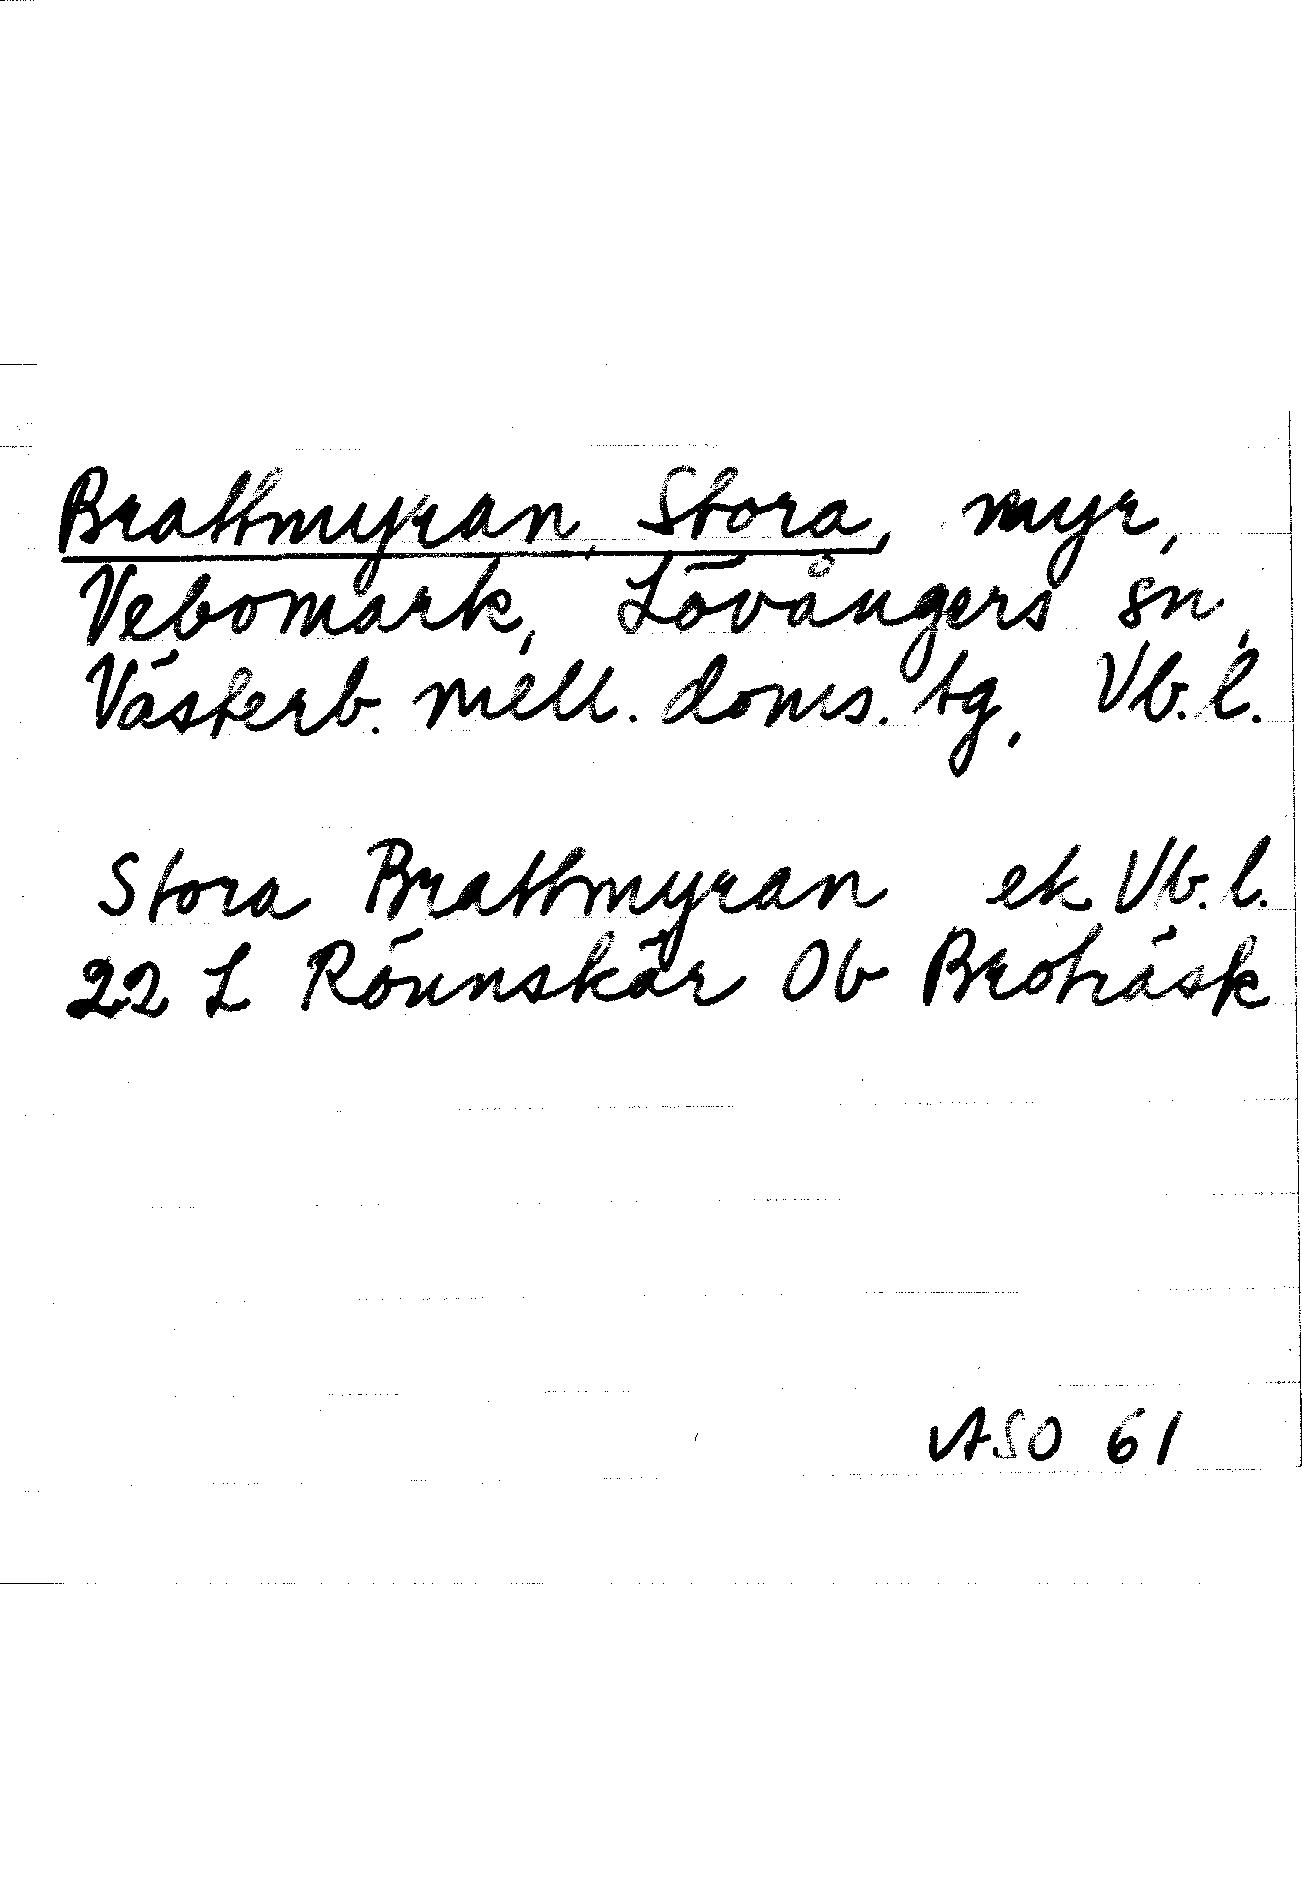 Brattmyran, Stora, myr,
Vebomark, Lövångers sn,
Västerb. mell. doms. tg, Vb. l.
Stora Brattmyran ek Vb. l.
22 L Rönnskär Ob Broträsk
ASO 61